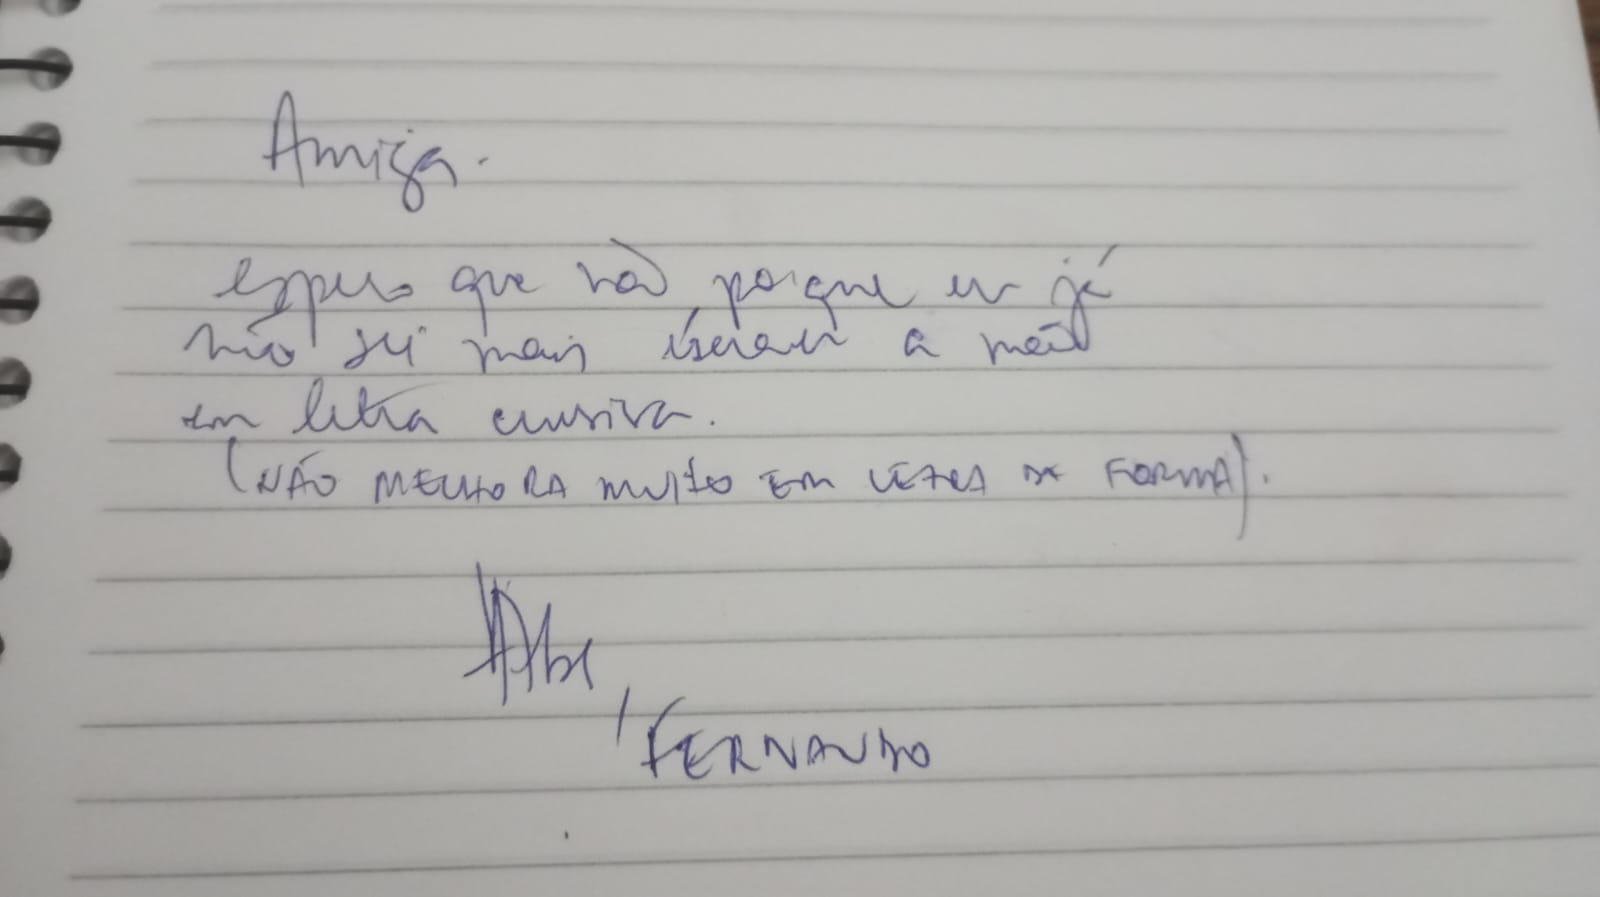 Amiga.
espero que não porque eu já
não sei mais escrever a mão
em letra cursiva.
(NÃO MELHORA MUITO EM LETRA DE FORMA).
FERNANDO